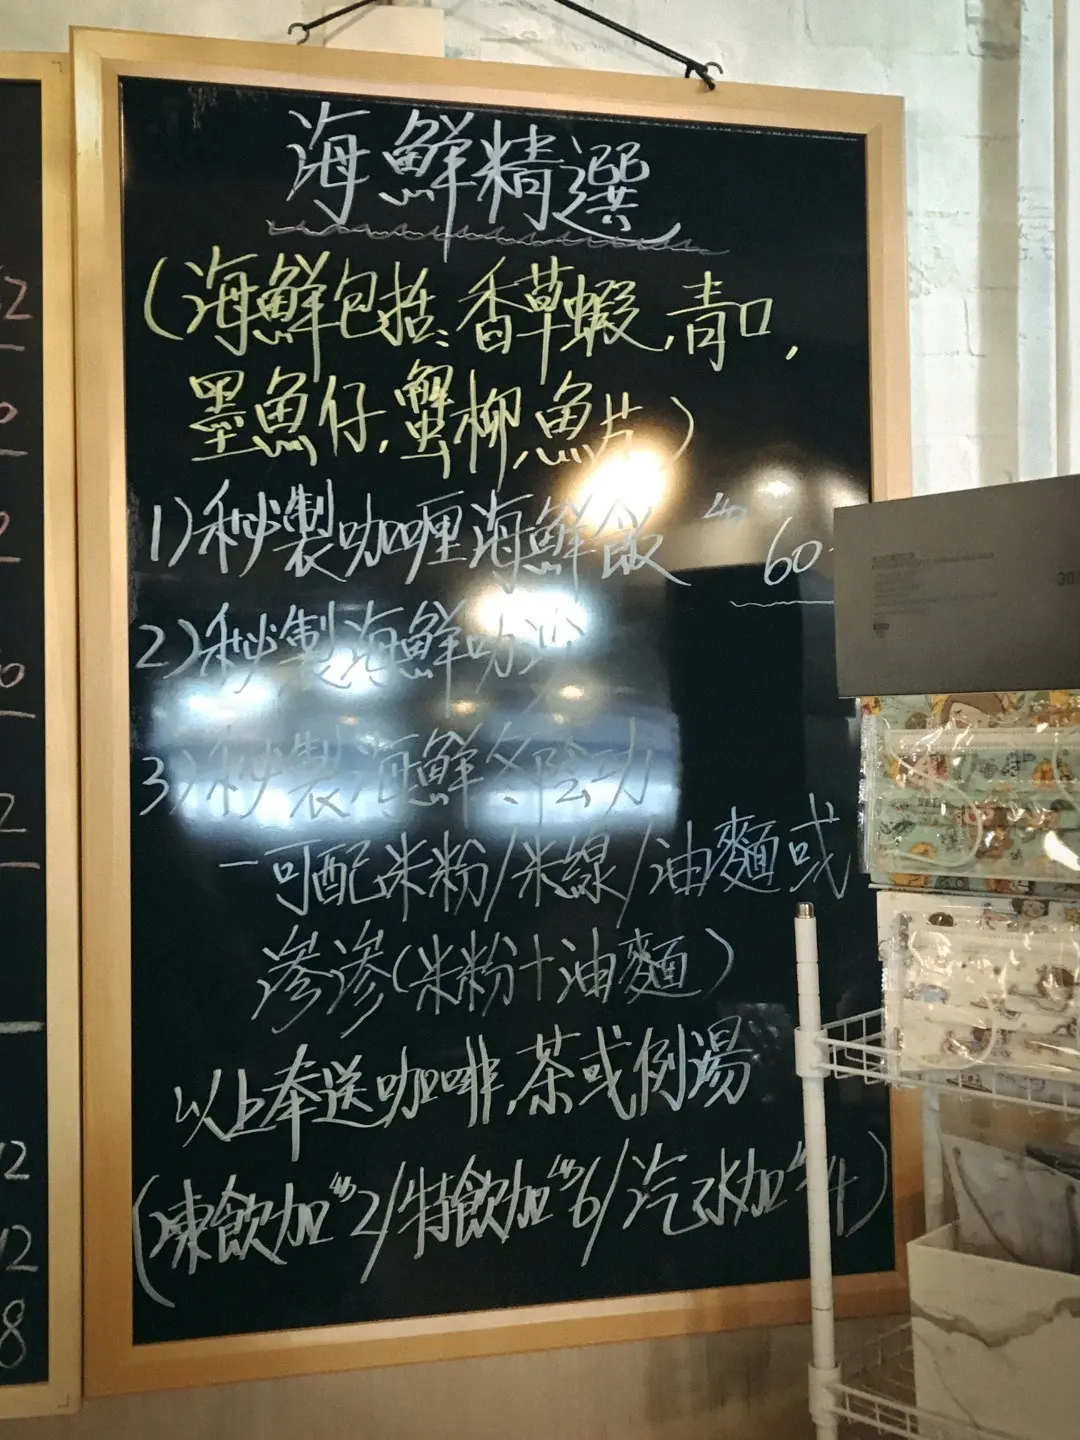 海鮮精選
(海鮮包括:香草蝦,青口,
墨魚仔,蟹柳,魚片)
1)秘製咖喱海鮮飯 $60
2)秘製海鮮叻沙
3)秘製海鮮冬陰功
-可配米粉/米線/油麵或
滲滲(米粉+油麵)
以上奉送咖啡,茶或例湯
(凍飲加$2/特飲加$6/汽水加$4)
2
0
2
0
2
12
12
8
30